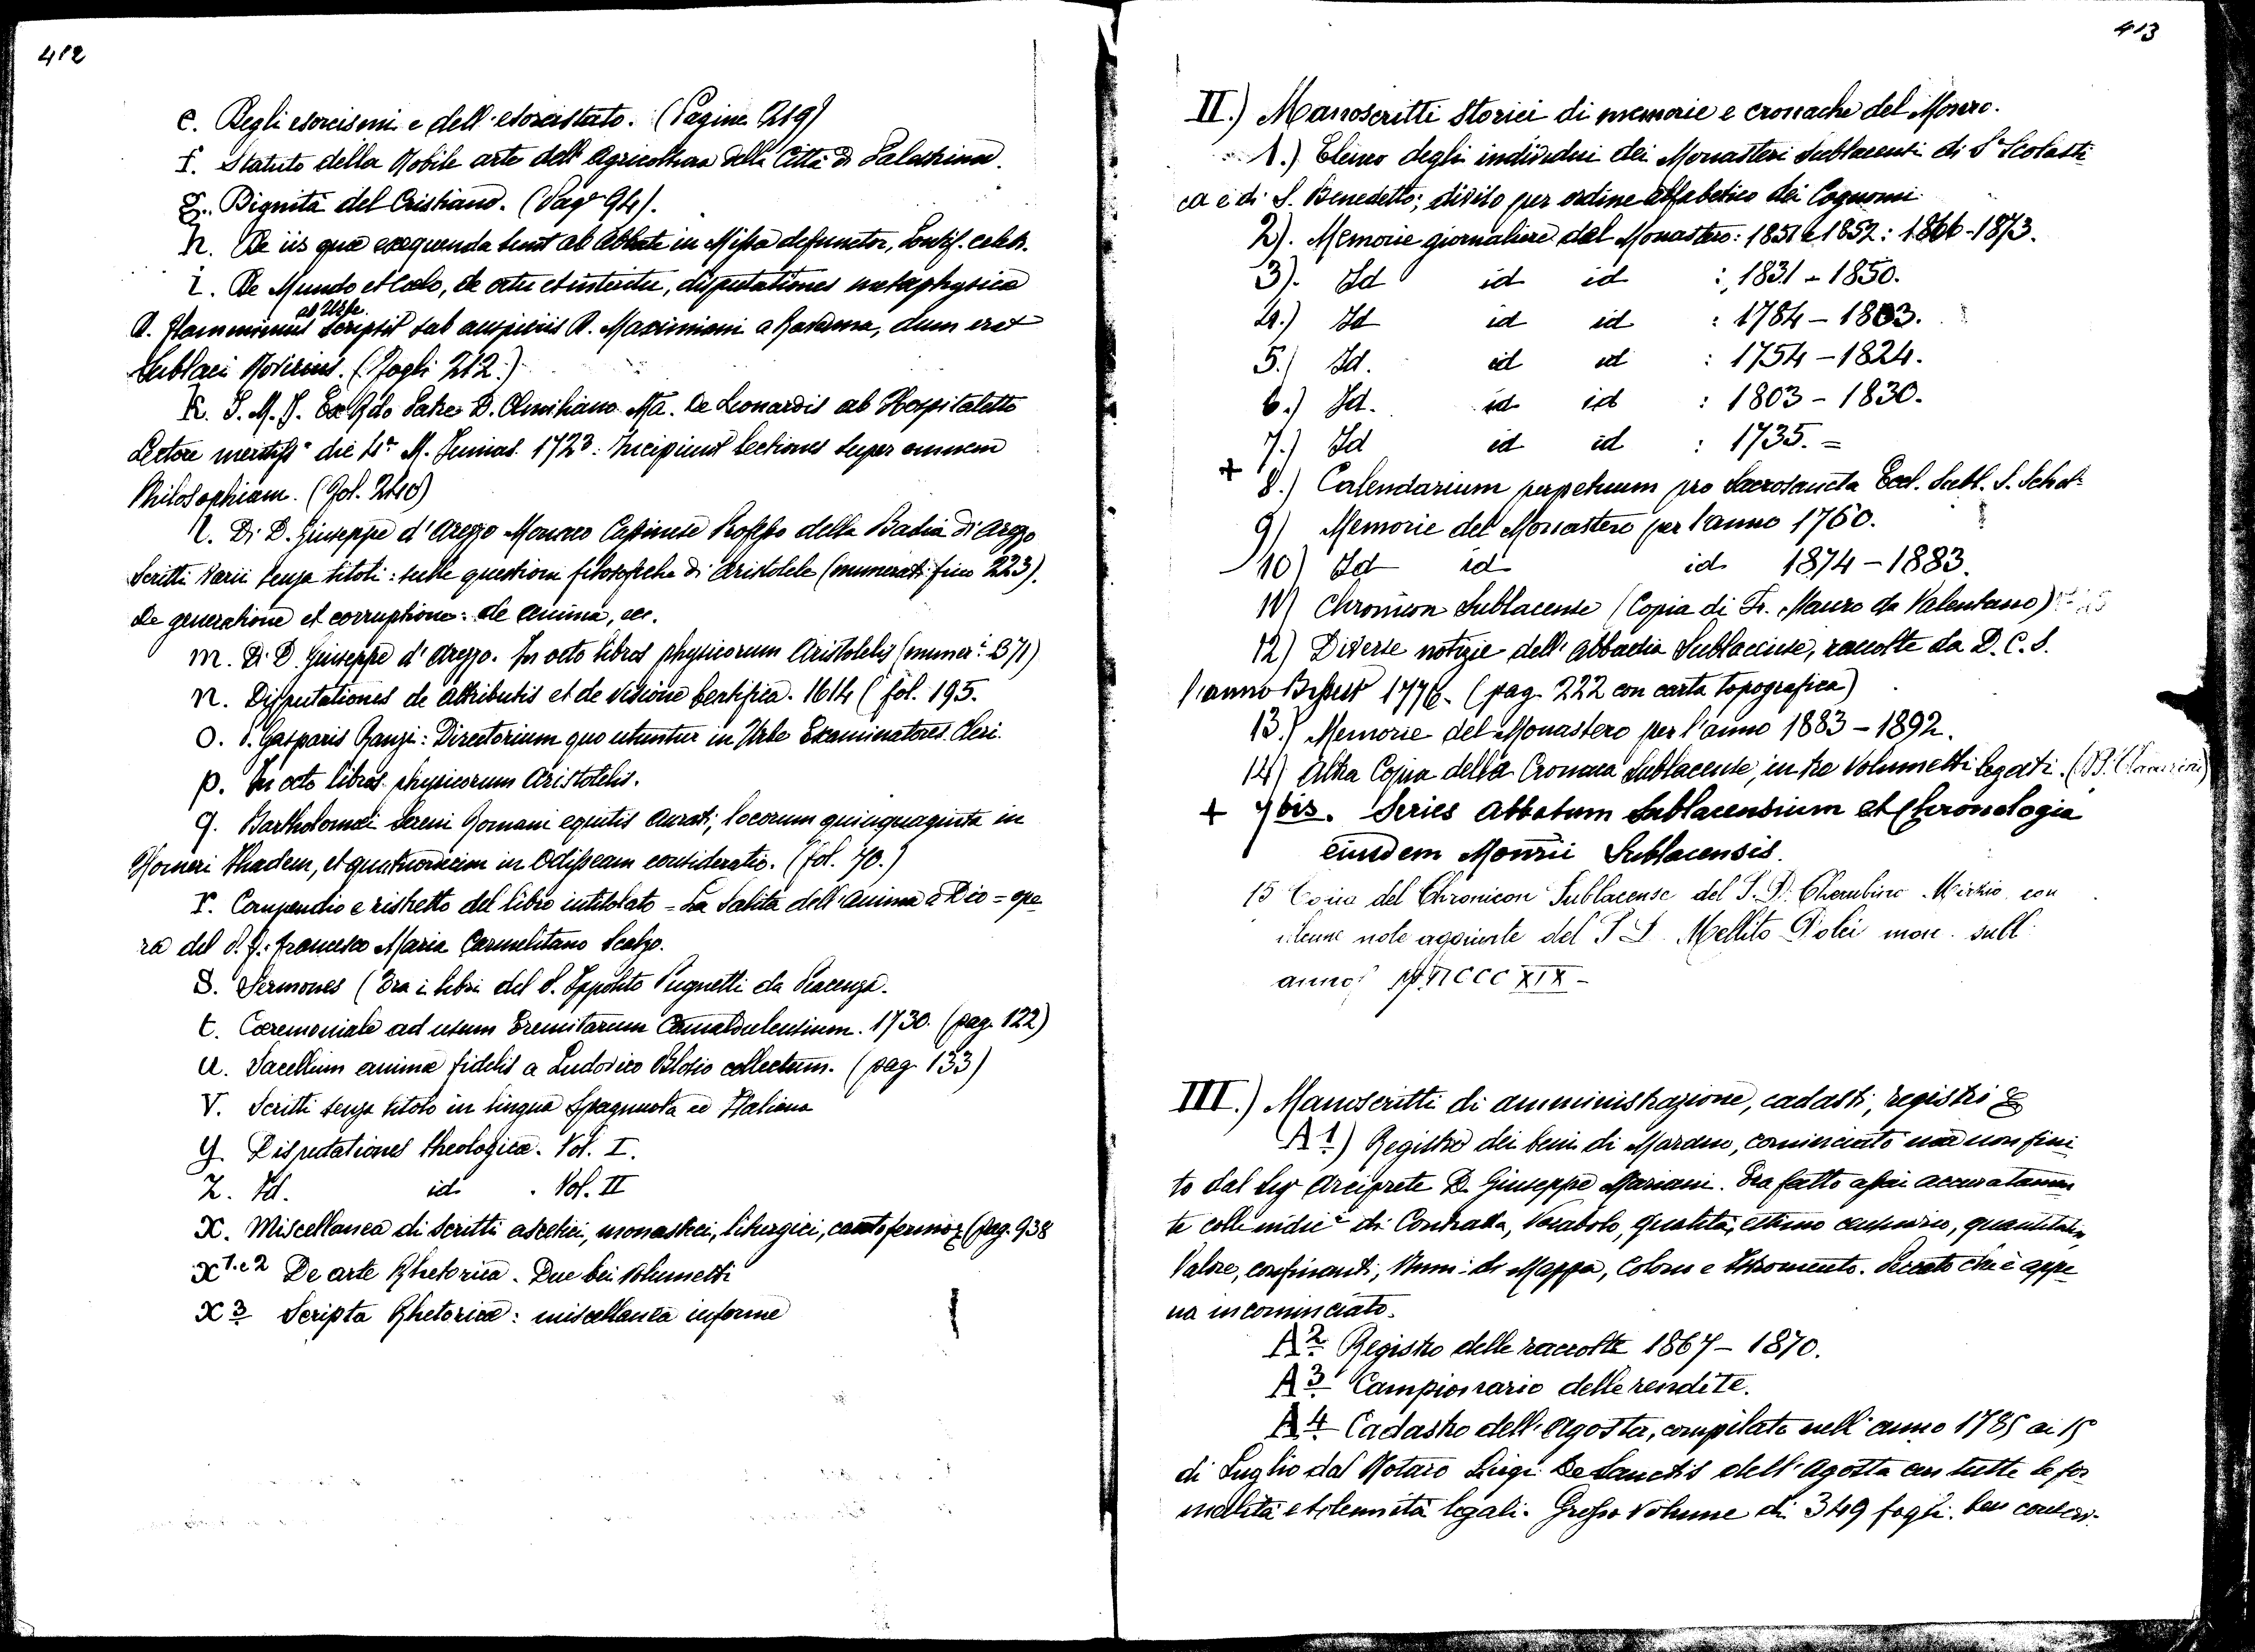 412
e. Degli esorcismi e dell'esorcistato. (Pagine 219)
f. Statuto della Nobile arte dell'Agricoltura della Città di Palestrina.
g. Dignità del Cristiano. (Pag. 94).
h. De iis quæ exequenda sunt ab Abbate in Missa defunctor, Pontif. celeb.
i. De Mundo et Cœlo, de ortu et interitu, disputationes metaphysicæ
ab Urbe
D. Flamminius scripsit sub auspiciis D. Maximiani a Ravenna, dum erat
Sublaci Novitius. (fogli 212.)
K. J. M. J. Ex Rdo Patre D. Æmiliano Ma. De Leonardis ab Hospitaletto
Lectore meritiss.o die 4.a M. Junias 1723. Incipiunt lectiones super omnem
Philosophiam. (Fol. 240)
l. Di D. Giuseppe d'Arezzo Monaco Casinese Professo della Badia di Arezzo
Scritti varii senza titoli: sulle questioni filosofiche di Aristotele (numerati fino 223).
De generatione et corruptione: de anima, ec.
m. Di D. Giuseppe d'Arezzo. In octo libros physicorum Aristotelis (numer.i 371)
n. Disputationes de attributis et de visione beatifica. 1614 (fol. 195.
o. P. Gasparis Ranzi: Directorium quo utuntur in Urbe Examinatores Cleri.
p. In octo libros physicorum Aristotelis.
q. Bartholomæi Sereni Romani equitis aurati, locorum quinquaginta in
Homeri Iliadem, et quatuordecim in Odisseam consideratio. (fol. 70.)
r. Compendio e ristretto del libro intitolato = La Salita dell'anima a Dio = ope
ra del P. F. Francesco Maria Carmelitano Scalzo.
S. Sermones (Era i libri del P. Ippolito Pugnetti da Piacenza.
t. Cæremoniale ad usum Eremitarum Camaldulensium. 1730. (pag. 122)
u. Sacellum animæ fidelis a Ludovico Blosio collectum. (pag. 133)
V. Scritti senza titolo in lingua Spagnuola ed Italiana
y. Disputationes theologicæ. Vol. I.
Z. Id. id. . Vol. II
X. Miscellanea di scritti ascetici, monastici, liturgici, canto fermo (pag. 938
X 1. e 2 De arte Rhetorica. Due bei volumetti
X 3 Scripta Rhetoricæ: miscellanea informe
413
II.) Manoscritti storici di memorie e cronache del Monro.
1.) Elenco degli individui dei Monasteri Sublacensi di S. Scolasti
ca e di S. Benedetto; diviso per ordine alfabetico dei Cognomi
2). Memorie giornaliere del Monastero: 1851 e 1852: 1866-1873.
3). Id id id : 1831 - 1850.
4.) Id id id : 1784 - 1803.
5.) Id. id id : 1754 - 1824.
6.) Id. id id : 1803 - 1830.
7.) Id id id : 1735. =
+ 8.) Calendarium perpetuum pro Sacrosancta Eccl. Subl. S. Schol.
9) Memorie del Monastero per l'anno 1760.
10) Id id id 1874 - 1883.
11) Chronicon Sublacense (Copia di Fr. Mauro da Valentano)
12) Diverse notizie dell'Abbadia Sublacense, raccolte da D. C. S.
l'anno 1776. (pag. 222 con carta topografica)
13.) Memorie del Monastero per l'anno 1883 - 1892.
14) Altra Copia della Cronaca Sublacense, in tre Volumetti legati.
+ 7 bis. Series Abbatum Sublacensium et Chronologia
eiusdem Monrii Sublacensis.
15 Copia del Chronicon Sublacense del P. D. Cherubino Mirzio con
alcune note aggiunte del P. D. Mellito Dolci mon. subl.
anno MDCCCXIX -
III.) Manoscritti di amministrazione, cadasti, registri &
A 1.) Registro dei beni di Marano, cominciato ma non fini
to dal Sigr Arciprete D. Giuseppe Mariani. Era fatto assai accuratamen
te colle indic.i di Contrada, Vocabolo, qualità, estimo censuario, quantità,
Valore, confinanti, Num. di Mappa, Colono e Istromento. Peccato che è appe
na incominciato.
A 2. Registro delle raccolte 1867 - 1870.
A 3. Campionario delle rendite.
A 4. Cadastro dell'Agosta, compilato nell'anno 1785 ai 15
di Luglio dal Notaro Luigi De Sanctis dell'Agosta con tutte le for
malità e solennità legali. Grosso Volume di 349 fogli. ben conser-